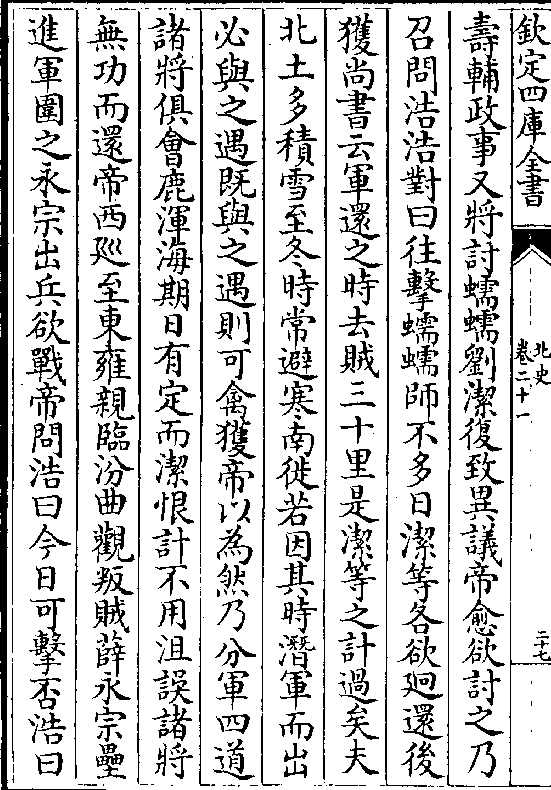 欽定四庫全書
北史
卷二十一
二十七
壽輔政事又將討蠕蠕劉潔復致異議帝愈欲討之乃
召問浩浩對曰往擊蠕蠕師不多日潔等各欲廻還後
獲尚書云軍還之時去賊三十里是潔等之計過矣夫
北土多積雪至冬時常避寒南徙若因其時潛軍而出
必與之遇既與之遇則可禽獲帝以為然乃分軍四道
諸將俱會鹿渾海期日有定而潔恨計不用沮誤諸將
無功而還帝西廵至東雍親臨汾曲觀叛賊薛永宗壘
進軍圍之永宗出兵欲戰帝問浩曰今日可擊否浩曰